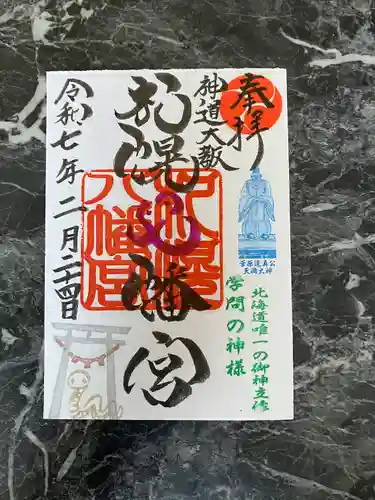 奉拝
神道大教
札幌八幡宮
令和七年二月二十四日
札幌八幡宮
菅原道真公
天満大神
北海道唯一の御神立像
学問の神様